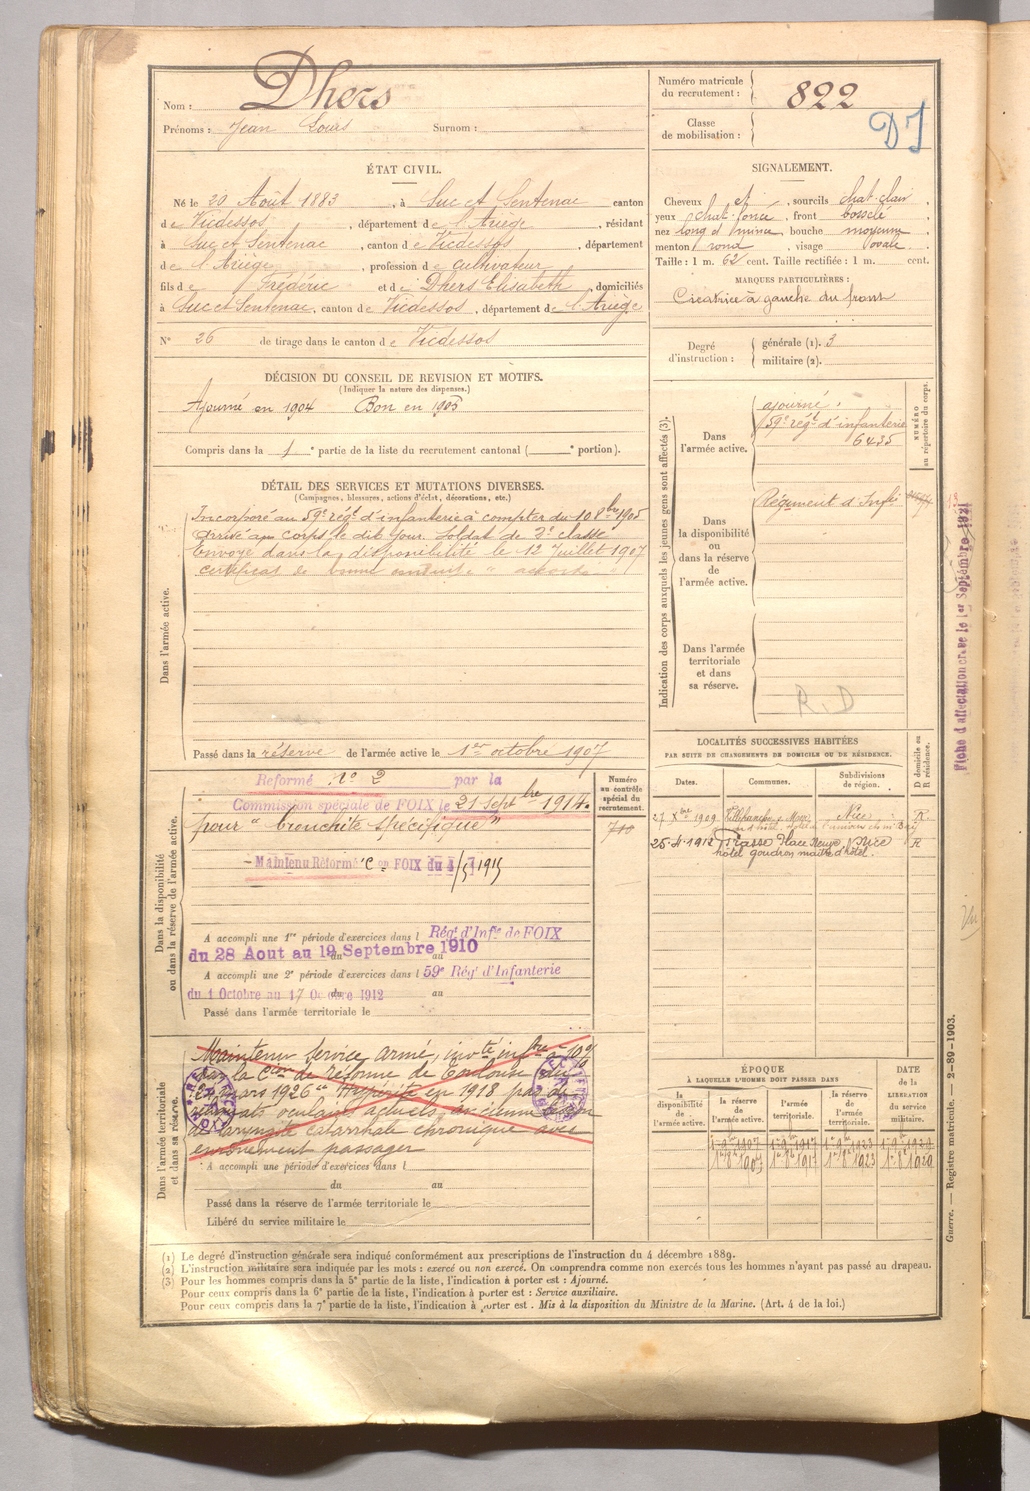 Nom : Dhers
Prénoms : Jean Louis Surnom :
Numéro matricule du recrutement : 822
Classe de mobilisation :
DI
ÉTAT CIVIL.
Né le 20 Août 1883, à Suc et Sentenac canton
de Vicdessos, département de l'Ariège, résidant
à Suc et Sentenac, canton de Vicdessos, département
de l'Ariège, profession de cultivateur
fils de Frédéric et de Dhers Elisabeth domiciliés
à Suc et Sentenac, canton de Vicdessos, département de l'Ariège
N° 26 de tirage dans le canton de Vicdessos
SIGNALEMENT.
Cheveux et, sourcils chat-clair,
yeux chat-foncé, front bosselé,
nez long et mince, bouche moyenne
menton rond, visage ovale.
Taille : 1 m. 62 cent. Taille rectifiée : 1 m. cent.
MARQUES PARTICULIÈRES :
Cicatrice à gauche du front
Degré d'instruction : générale (1). 3
militaire (2).
DÉCISION DU CONSEIL DE REVISION ET MOTIFS.
(Indiquer la nature des dispenses.)
Ajourné en 1904 Bon en 1905
Compris dans la 1e partie de la liste du recrutement cantonal (e portion).
DÉTAIL DES SERVICES ET MUTATIONS DIVERSES.
(Campagnes, blessures, actions d'éclat, décorations, etc.)
Dans l'armée active.
Incorporé au 59e régt d'infanterie à compter du 10 8bre 1905
arrivé au corps le dit jour. Soldat de 2e classe
Envoyé dans la disponibilité le 12 Juillet 1907
certificat de bonne conduite "accordé"
Passé dans la réserve de l'armée active le 1er octobre 1907
Indication des corps auxquels les jeunes gens sont affectés (3).
NUMÉRO au répertoire du corps.
Dans l'armée active.
ajourné.
59e régt d'infanterie
6435
Dans la disponibilité ou dans la réserve de l'armée active.
Régiment d'Infie
Dans l'armée territoriale et dans sa réserve.
R.D
Fiche d'affectation créée le 1er Septembre 1921
Dans la disponibilité ou dans la réserve de l'armée active.
Réformé n° 2 par la
Commission spéciale de FOIX le 21 Septbre 1914.
pour "bronchite spécifique"
Maintenu Réformé Con FOIX du
A accompli une 1re période d'exercices dans l Régt d'Infie de FOIX
du 28 Aout au 19 Septembre 1910
A accompli une 2e période d'exercices dans l 59e Régt d'Infanterie
du 1 Octobre au 17 Octobre 1912 au
Passé dans l'armée territoriale le
Numéro au contrôle spécial du recrutement.
LOCALITÉS SUCCESSIVES HABITÉES
PAR SUITE DE CHANGEMENTS DE DOMICILE OU DE RÉSIDENCE.
Dates. Communes. Subdivisions de région. D domicile ou R résidence.
27 Xbre 1909 Villefranche s. Mer Nice R
25-4-1912 Grasse Place Neuve Nice R
hôtel goudron maître d'hôtel.
Dans l'armée territoriale et dans sa réserve.
Maintenu service armé, invté infre à 10%
par la Cion de réforme de Toulouse du
mars 1926
laryngite catarrhale chronique avec
enrouement passager
A accompli une période d'exercices dans l
du au
Passé dans la réserve de l'armée territoriale le
Libéré du service militaire le
ÉPOQUE
À LAQUELLE L'HOMME DOIT PASSER DANS
la disponibilité de l'armée active. la réserve de l'armée active. l'armée territoriale. la réserve de l'armée territoriale. DATE de la LIBÉRATION du service militaire.
1er 8bre 1907 1er 8bre 1917 1er 8bre 1923 1er 8bre 1929
Guerre. — Registre matricule. 2-89-1903.
(1) Le degré d'instruction générale sera indiqué conformément aux prescriptions de l'instruction du 4 décembre 1889.
(2) L'instruction militaire sera indiquée par les mots : exercé ou non exercé. On comprendra comme non exercés tous les hommes n'ayant pas passé au drapeau.
(3) Pour les hommes compris dans la 5e partie de la liste, l'indication à porter est : Ajourné.
Pour ceux compris dans la 6e partie de la liste, l'indication à porter est : Service auxiliaire.
Pour ceux compris dans la 7e partie de la liste, l'indication à porter est. Mis à la disposition du Ministre de la Marine. (Art. 4 de la loi.)